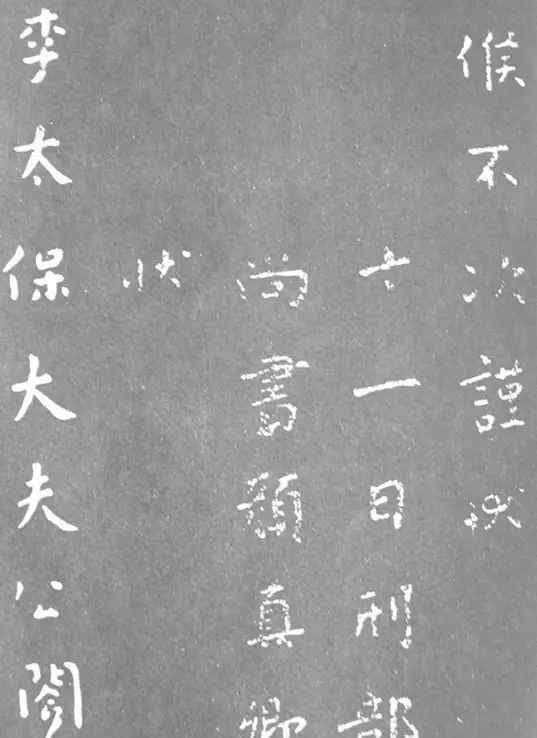 候不次謹狀
十一日刑部
尚書顏真卿
狀
李太保大夫公閣